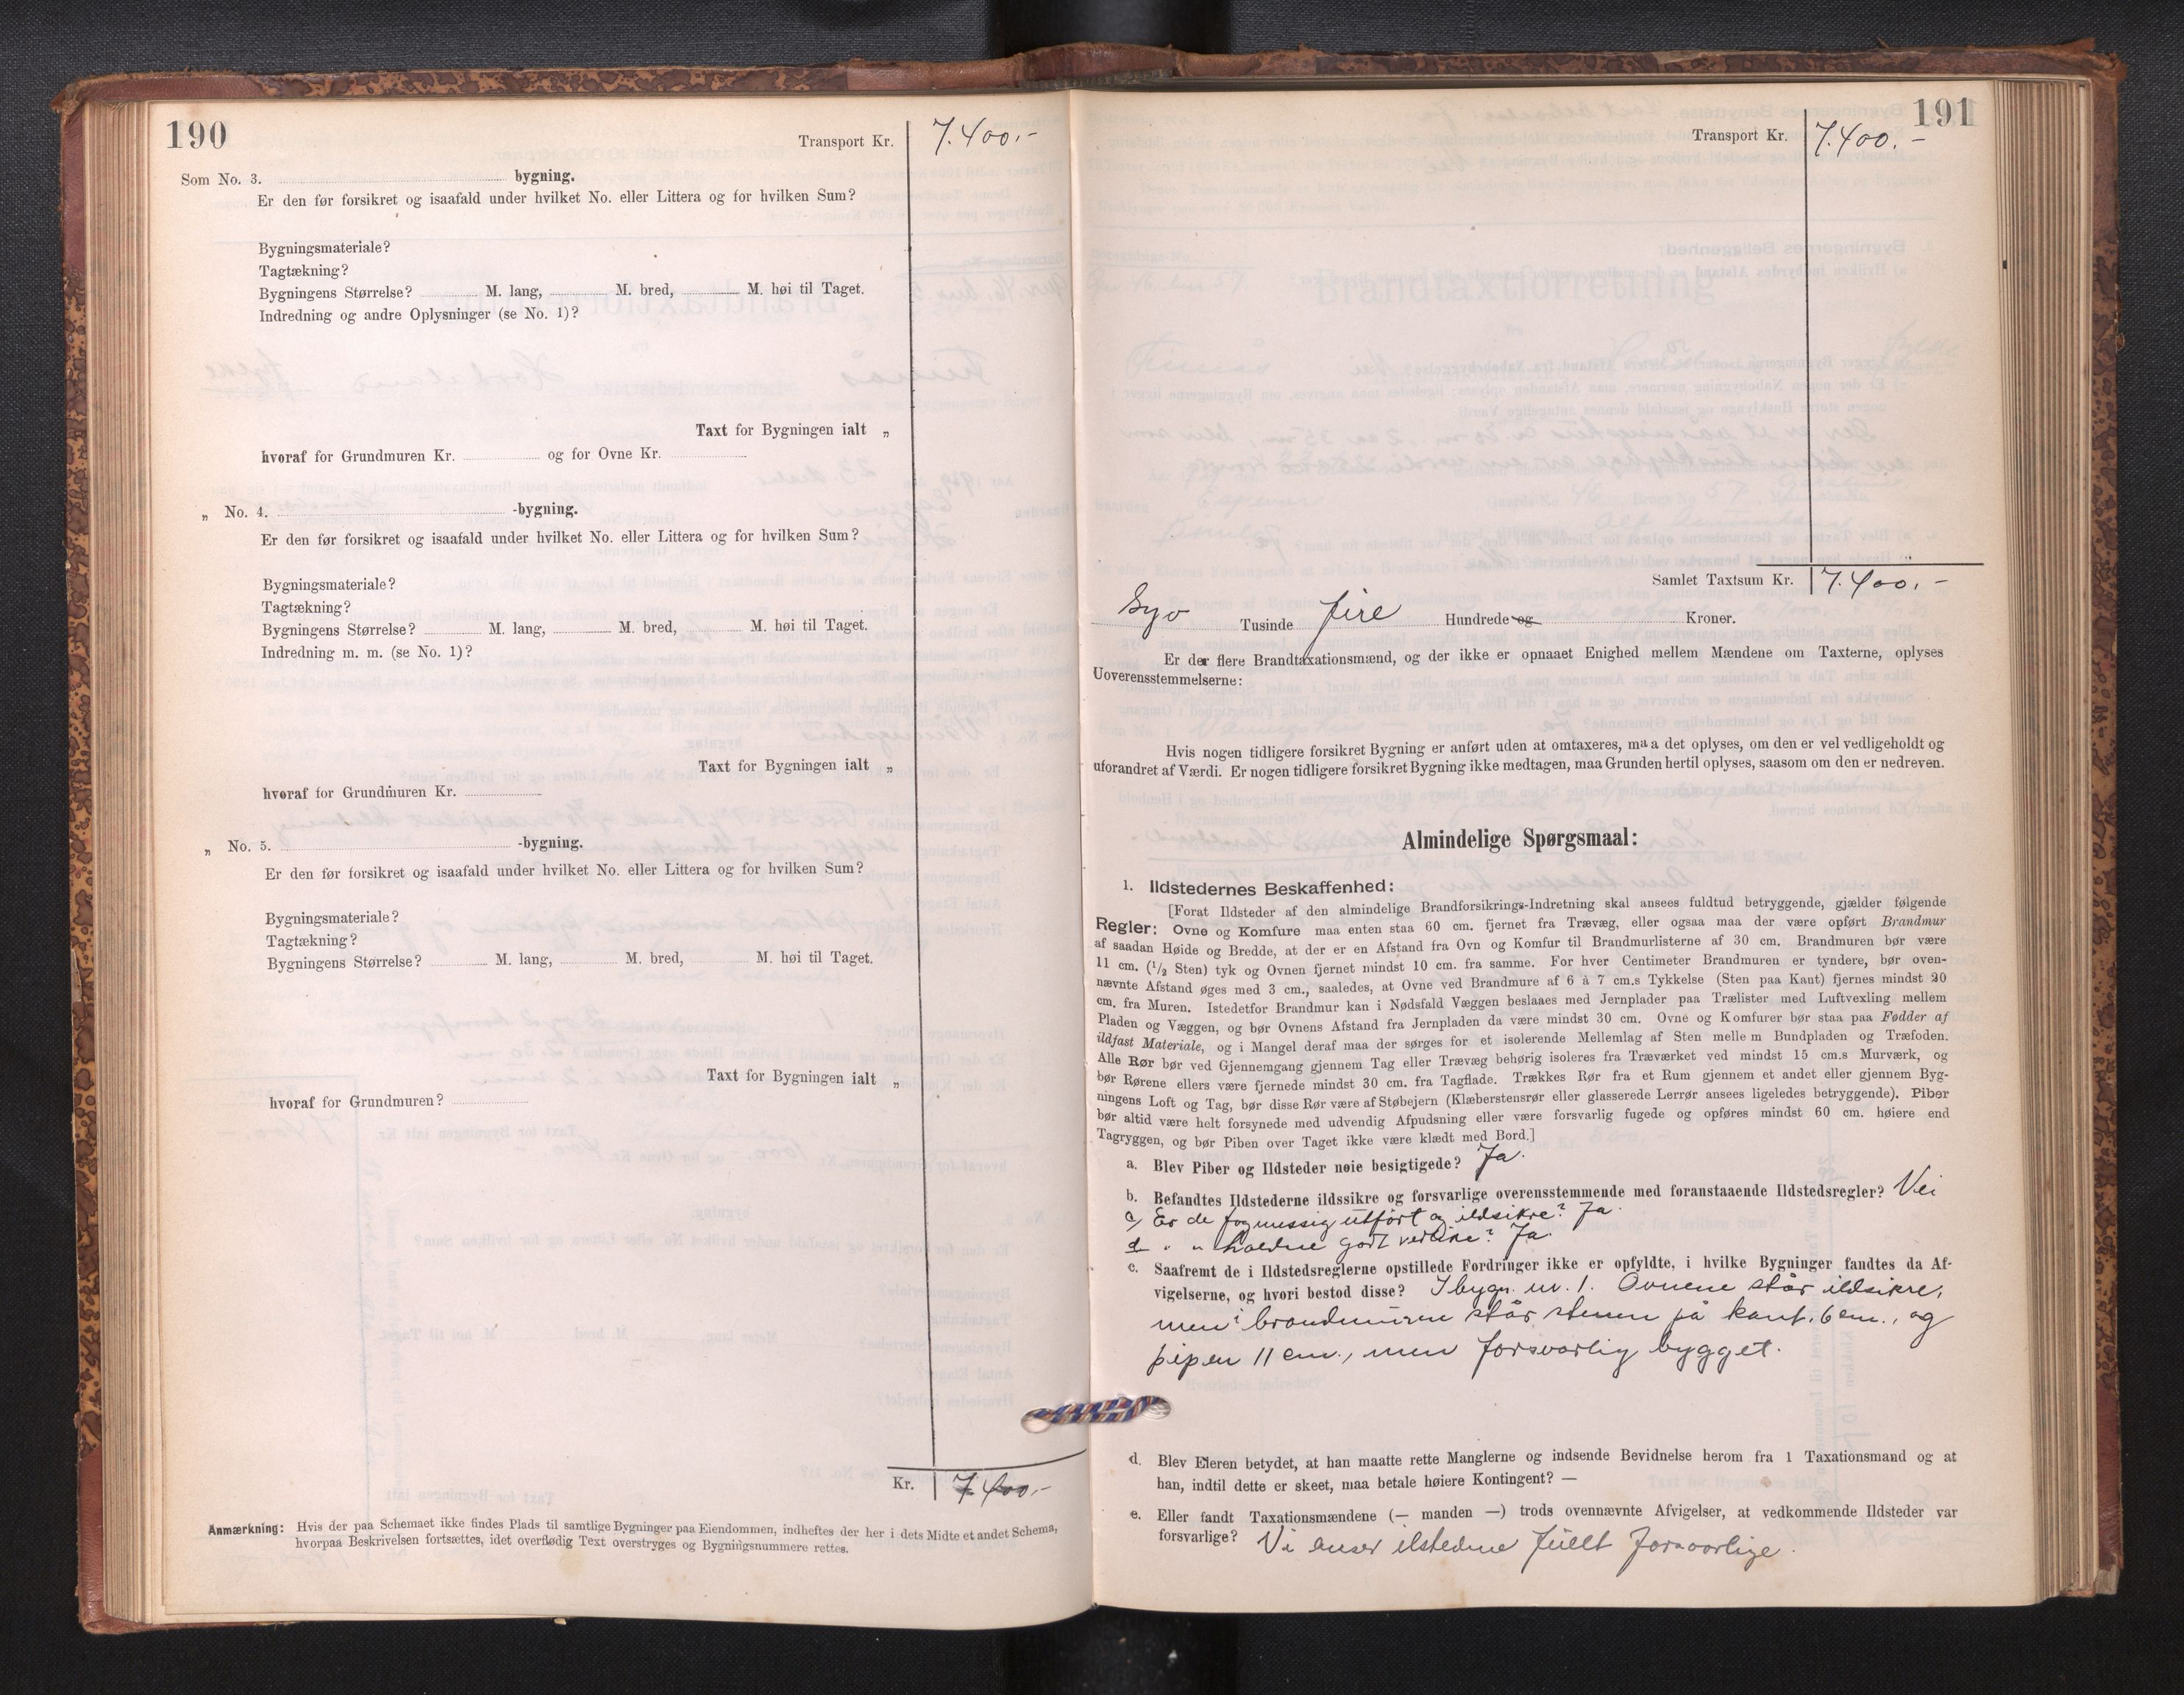 190
Transport Kr. 7.400.-
Som No. 3. bygning.
Er den før forsikret og isaafald under hvilket No. eller Littera og for hvilken Sum?
Bygningsmateriale?
Tagtækning?
Bygningens Størrelse? M. lang, M. bred, M. høi til Taget.
Indredning og andre Oplysninger (se No. 1)?
Taxt for Bygningen ialt „
hvoraf for Grundmuren Kr. og for Ovne Kr.
„ No. 4. -bygning.
Er den før forsikret og isaafald under hvilket No. eller Littera og for hvilken Sum?
Bygningsmateriale?
Tagtækning?
Bygningens Størrelse? M. lang, M. bred, M. høi til Taget.
Indredning m. m. (se No. 1)?
Taxt for Bygningen ialt „
hvoraf for Grundmuren Kr.
„ No. 5. -bygning.
Er den før forsikret og isaafald under hvilket No. eller Littera og for hvilken Sum?
Bygningsmateriale?
Tagtækning?
Bygningens Størrelse? M. lang, M. bred, M. høi til Taget.
Taxt for Bygningen ialt „
hvoraf for Grundmuren?
Kr. 7.400.-
Anmærkning: Hvis der paa Schemaet ikke findes Plads til samtlige Bygninger paa Eiendommen, indheftes der her i dets Midte et andet Schema,
hvorpaa Beskrivelsen fortsættes, idet overflødig Text overstryges og Bygningsnummere rettes.
191
Transport Kr. 7.400.-
Samlet Taxtsum Kr. 7.400.-
Syv Tusinde fire Hundrede og Kroner.
Er der flere Brandtaxationsmænd, og der ikke er opnaaet Enighed mellem Mændene om Taxterne, oplyses
Uoverensstemmelserne:
Hvis nogen tidligere forsikret Bygning er anført uden at omtaxeres, maa det oplyses, om den er vel vedligeholdt og
uforandret af Værdi. Er nogen tidligere forsikret Bygning ikke medtagen, maa Grunden hertil oplyses, saasom om den er nedreven.
Almindelige Spørgsmaal:
1. Ildstedernes Beskaffenhed:
[Forat Ildsteder af den almindelige Brandforsikrings-Indretning skal ansees fuldtud betryggende, gjælder følgende
Regler: Ovne og Komfure maa enten staa 60 cm. fjernet fra Trævæg, eller ogsaa maa der være opført Brandmur
af saadan Høide og Bredde, at der er en Afstand fra Ovn og Komfur til Brandmurlisterne af 30 cm. Brandmuren bør være
11 cm. (1/2 Sten) tyk og Ovnen fjernet mindst 10 cm. fra samme. For hver Centimeter Brandmuren er tyndere, bør oven-
nævnte Afstand øges med 3 cm., saaledes, at Ovne ved Brandmure af 6 à 7 cm.s Tykkelse (Sten paa Kant) fjernes mindst 20
cm. fra Muren. Istedetfor Brandmur kan i Nødsfald Væggen beslaaes med Jernplader paa Trælister med Luftvexling mellem
Pladen og Væggen, og bør Ovnens Afstand fra Jernpladen da være mindst 30 cm. Ovne og Komfurer bør staa paa Fødder af
ildfast Materiale, og i Mangel deraf maa der sørges for et isolerende Mellemlag af Sten mellem Bundpladen og Træfoden.
Alle Rør bør ved Gjennemgang gjennem Tag eller Trævæg behørig isoleres fra Træværket ved mindst 15 cm.s Murværk, og
bør Rørene ellers være fjernede mindst 30 cm. fra Tagflade. Trækkes Rør fra et Rum gjennem et andet eller gjennem Byg-
ningens Loft og Tag, bør disse Rør være af Støbejern (Klæberstensrør eller glasserede Lerrør ansees ligeledes betryggende). Piber
bør altid være helt forsynede med udvendig Afpudsning eller være forsvarlig fugede og opføres mindst 60 cm. høiere end
Tagryggen, og bør Piben over Taget ikke være klædt med Bord.]
a. Blev Piber og Ildsteder nøie besigtigede? Ja.
b. Befandtes Ildstederne ildssikre og forsvarlige overensstemmende med foranstaaende Ildstedsregler? Nei
c, Er de fagmessig utført og ildsikre? Ja.
d " " holdne godt vedlike? Ja.
c. Saafremt de i Ildstedsreglerne opstillede Fordringer ikke er opfyldte, i hvilke Bygninger fandtes da Af-
vigelserne, og hvori bestod disse? I bygn. nr. 1. Ovnene står ildsikre,
men i brandmuren står stenen på kant, 6 cm., og
pipen 11 cm., men forsvarlig bygget.
d. Blev Eieren betydet, at han maatte rette Manglerne og indsende Bevidnelse herom fra 1 Taxationsmand og at
han, indtil dette er skeet, maa betale høiere Kontingent? —
e. Eller fandt Taxationsmændene (— manden —) trods ovennævnte Afvigelser, at vedkommende Ildsteder var
forsvarlige? Vi anser ilstedene fullt forsvarlige.